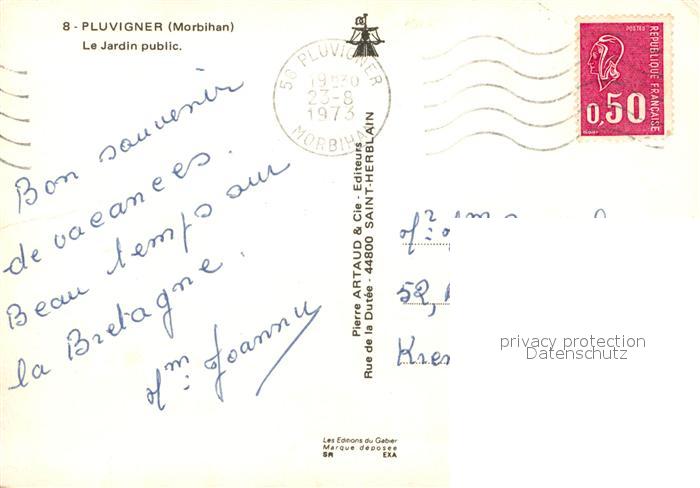 8 - PLUVIGNER (Morbihan)
Le Jardin public.
56 PLUVIGNER
19H30
23-8
1973
MORBIHAN
POSTES
REPUBLIQUE FRANÇAISE
0,50
Bon souvenir
de vacances.
Beau temps sur
la Bretagne.
Mm: Joannu
Pierre ARTAUD & Cie - Editeurs
Rue de la Dutée - 44800 SAINT-HERBLAIN
52,
privacy protection
Datenschutz
Les Editions du Gabier
Marque déposée
SR EXA